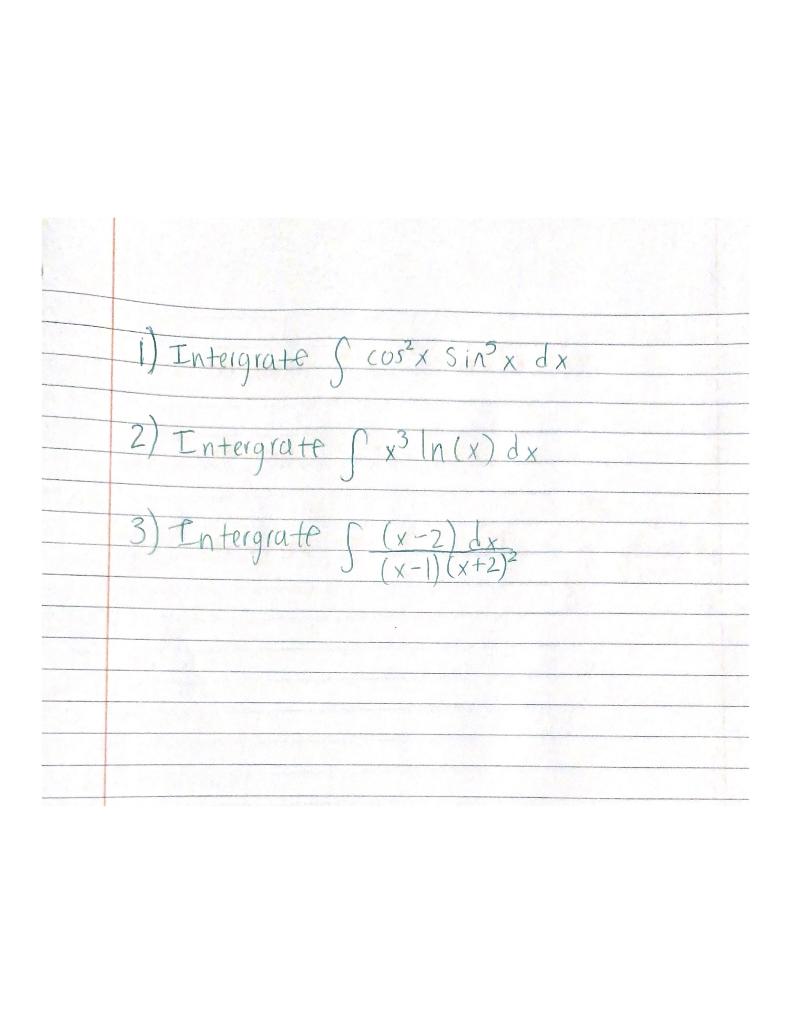 1) Intergrate ∫ cos²x sin⁵x dx
2) Intergrate ∫ x³ ln(x) dx
3) Intergrate ∫ (x-2) dx
(x-1)(x+2)²